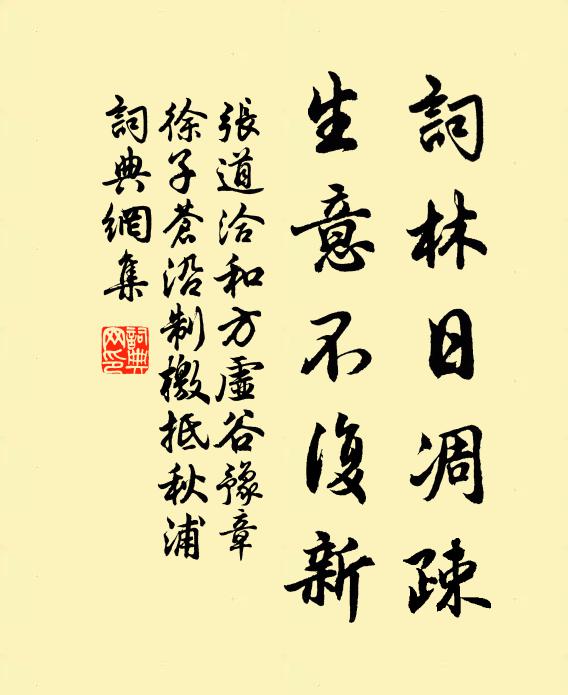 詞林日凋疎
生意不復新
張道洽和方虛谷豫章
徐子蒼沿制檄抵秋浦
詞典網集
詞典網印